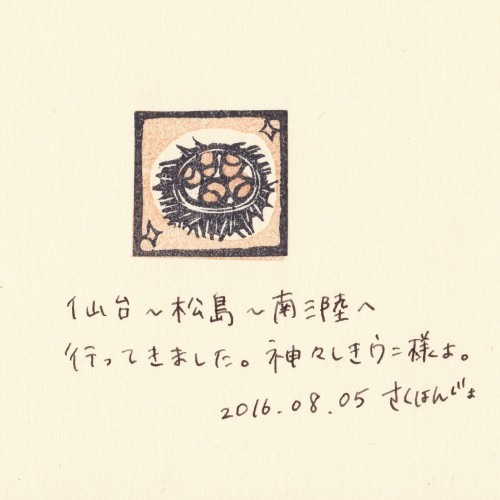 仙台~松島~南三陸へ
行ってきました。神々しきウニ様よ。
2016.08.05 さくはんじょ